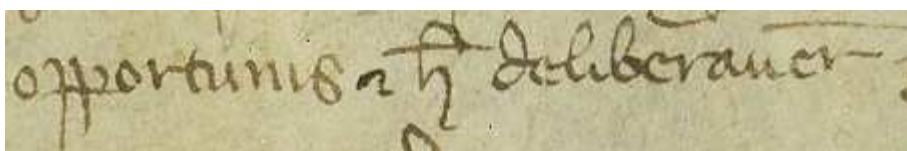 opportunis ⁊ h̄ deliberauer̄